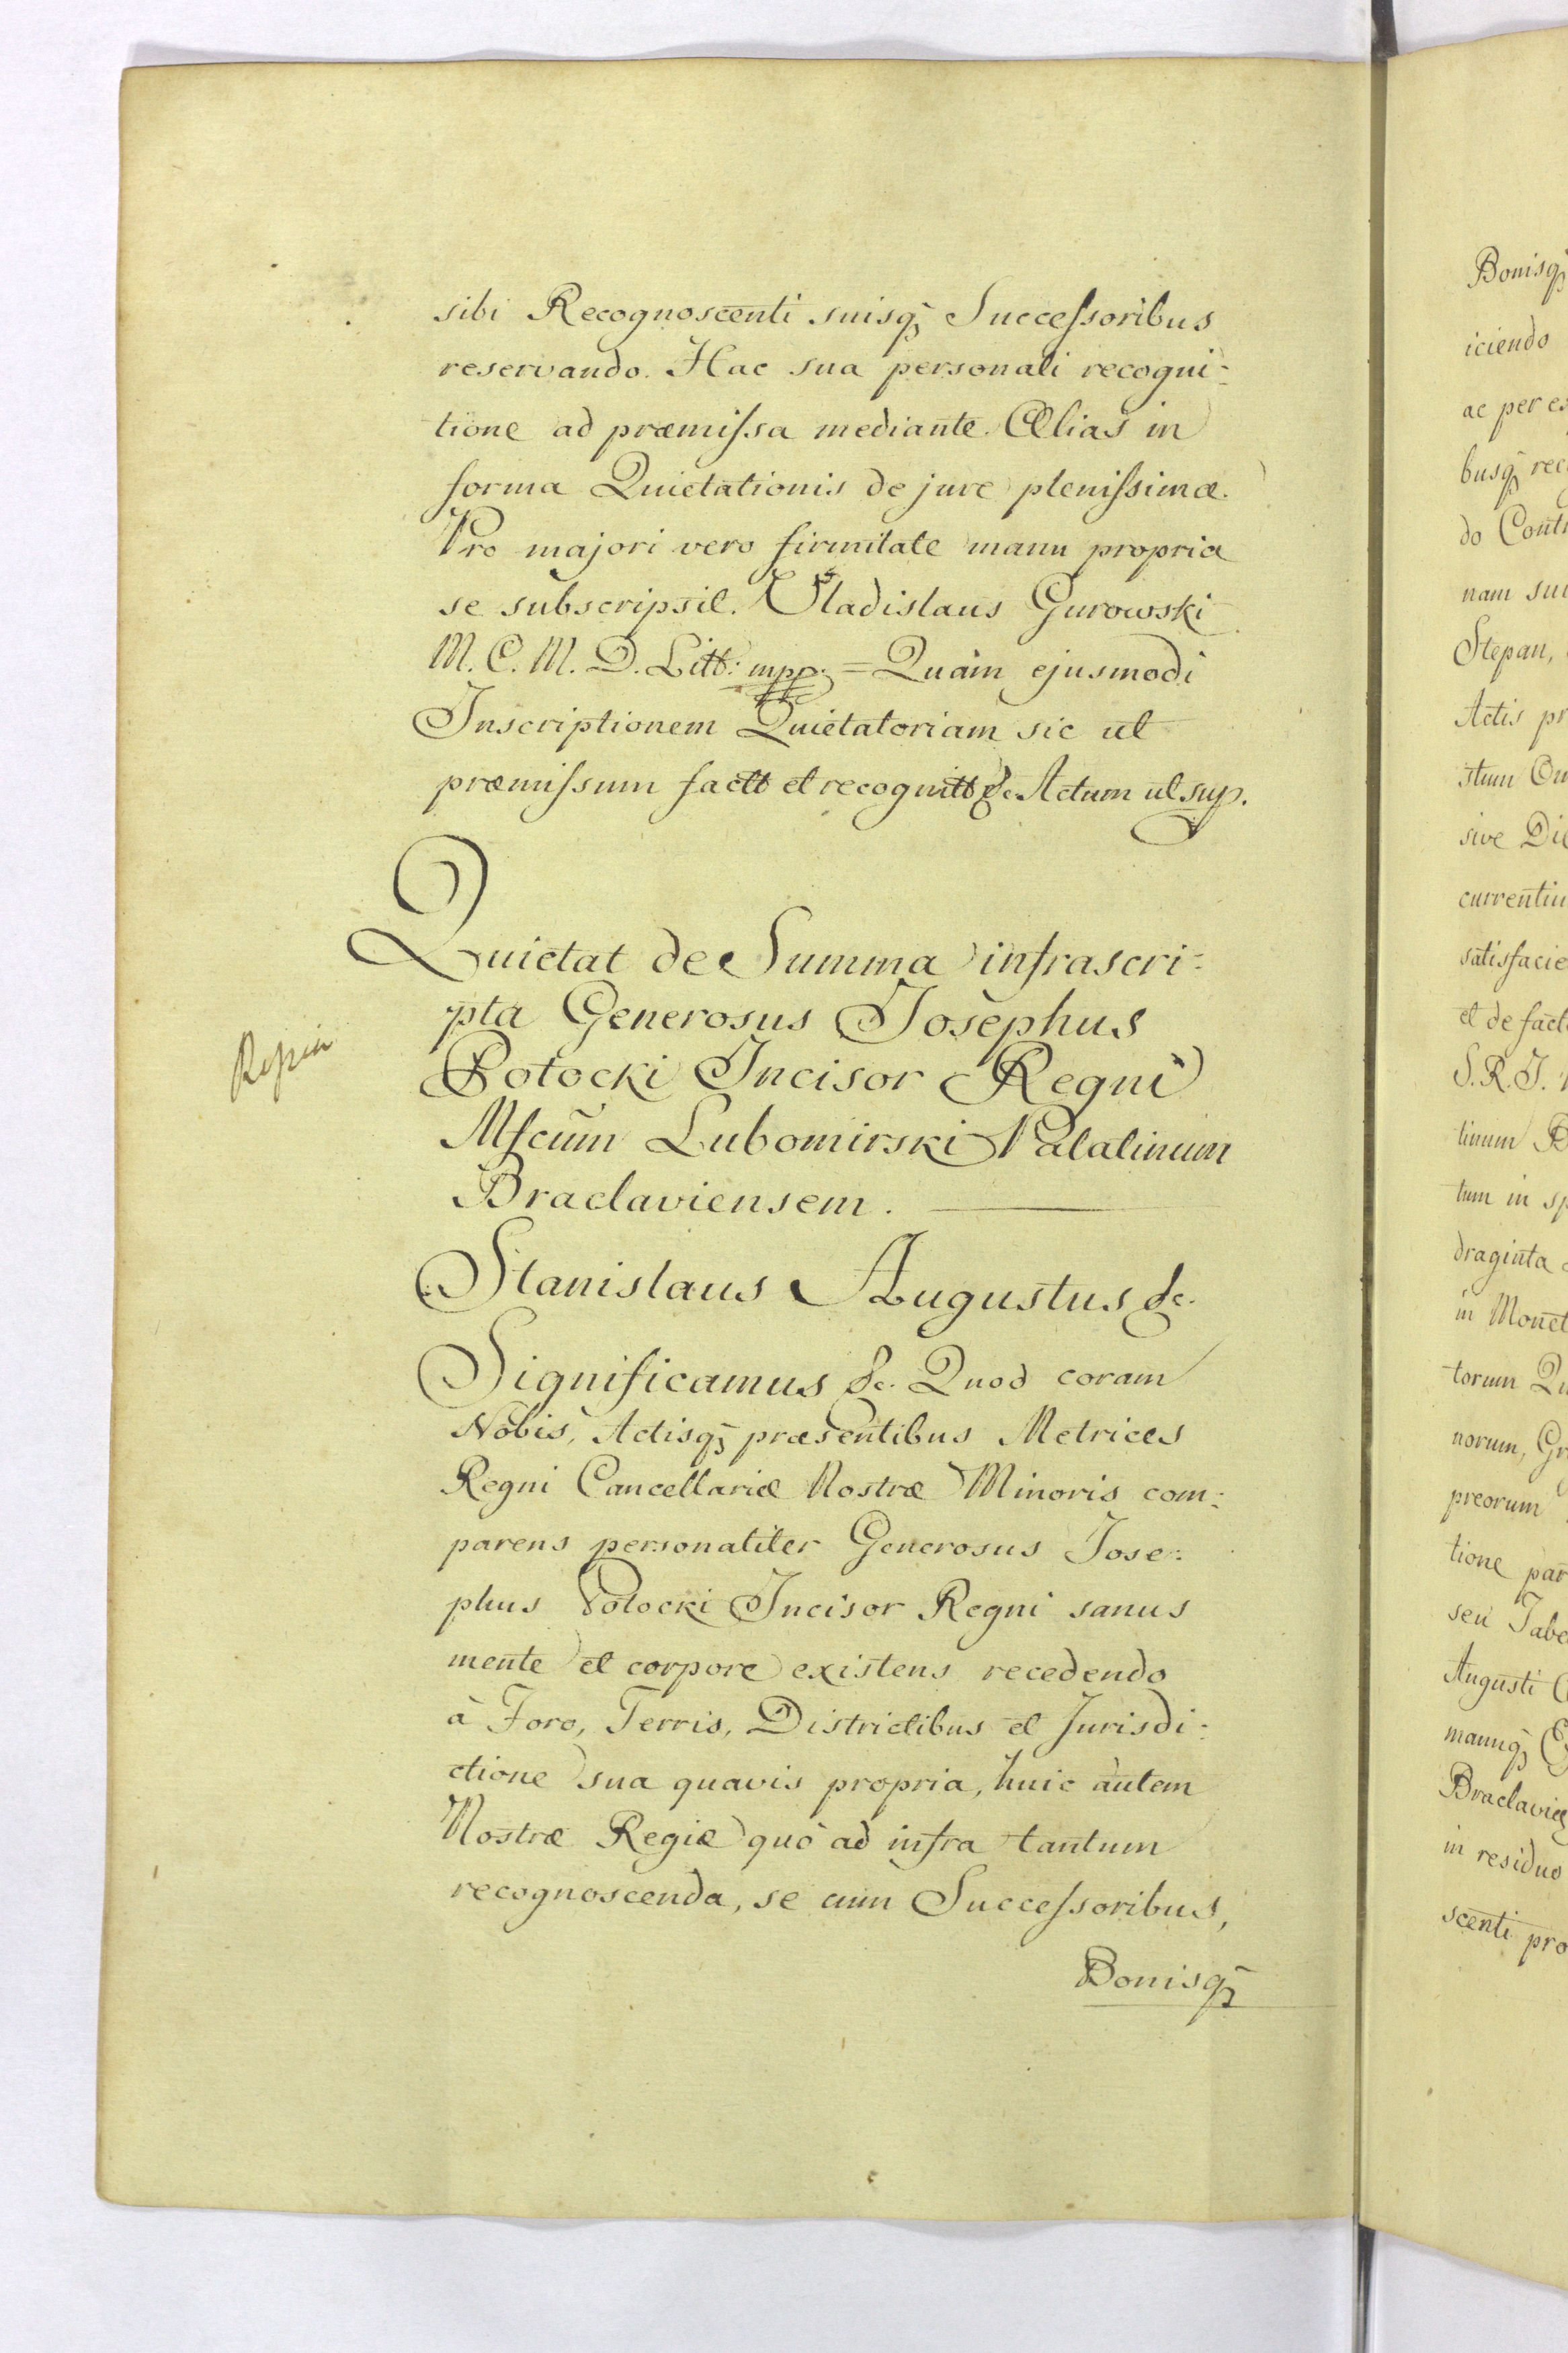 sibi Recognoscenti suisq; Successoribus
reservando. Hac sua personali recogni:
tione ad præmissa mediante. Alias in
forma Quietationis de jure plenissimæ.
Pro majori vero firmitate manu propria
se subscripsit. Vladislaus Gurowski
M. C. M. D. Litt: mpp. = Quam ejusmodi
Inscriptionem Quietatoriam sic ut
præmissum factt et recognitt &c. Actum ut sup.
Quietat de Summa infrascri:
pta Generosus Josephus
Potocki Incisor Regni
Mfcum Lubomirski Palatinum
Braclaviensem.
Stanislaus Augustus &c.
Significamus &c. Quod coram
Nobis, Actisq; præsentibus Metrices
Regni Cancellariæ Nostræ Minoris com:
parens personaliter Generosus Jose:
phus Potocki Incisor Regni sanus
mente et corpore existens recedendo
à Foro, Terris, Districtibus et Jurisdi:
ctione sua quavis propria, huic autem
Nostræ Regiæ quò ad infra tantum
recognoscenda, se cum Successoribus,
Bonisq;
Bonisq;
iciendo
ac per es
busq; rec
do Contr
nam su
Stepan,
Actis pr
sive Di
satisfacie
et de fact
S. R. J.
tinum B
tum in sp
draginta
in Monet
torum Qu
norum, Gr
preorum
tione par
seu Tabe
Augusti
manuq;
in residuo
scenti pro